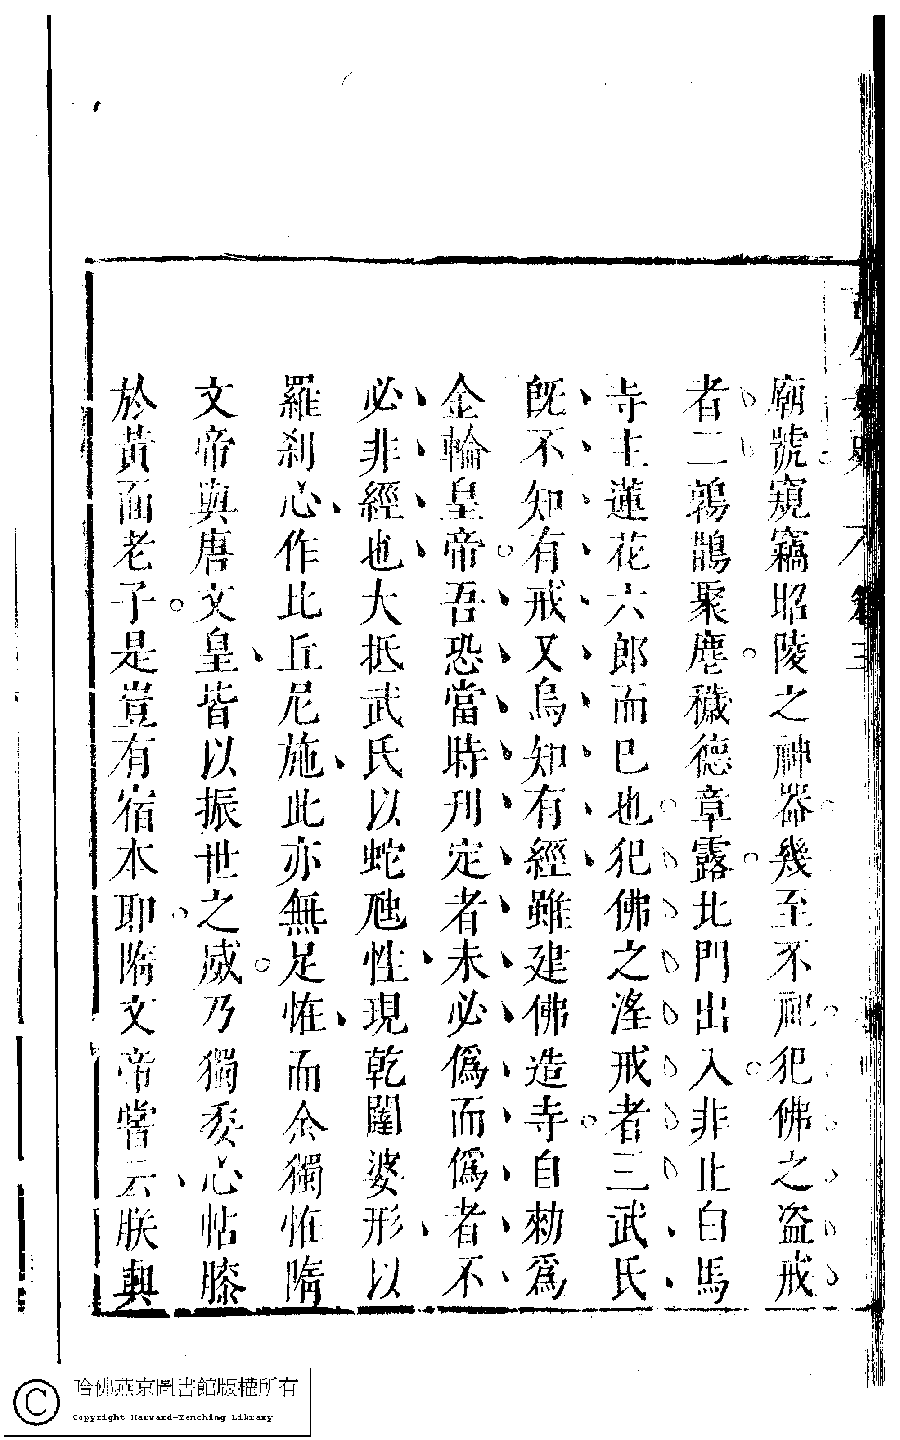 廟號窺竊昭陵之神器幾至不祀犯佛之盜戒
者二鶉鵲聚麀穢德章露北門出入非止白馬
寺主蓮花六郎而已也犯佛之滛戒者三武氏
旣不知有戒又烏知有經雖建佛造寺自勑爲
金輪皇帝吾恐當時刋定者未必僞而僞者不
必非經也大抵武氏以蛇虺性現乾闥婆形以
羅刹心作比丘尼施此亦無足恠而余獨恠隋
文帝與唐文皇皆以振世之威乃獨委心帖膝
於黃面老子是豈有宿本耶隋文帝嘗云朕與
哈佛燕京圖書館版權所有
Copyright Harvard-Yenching Library